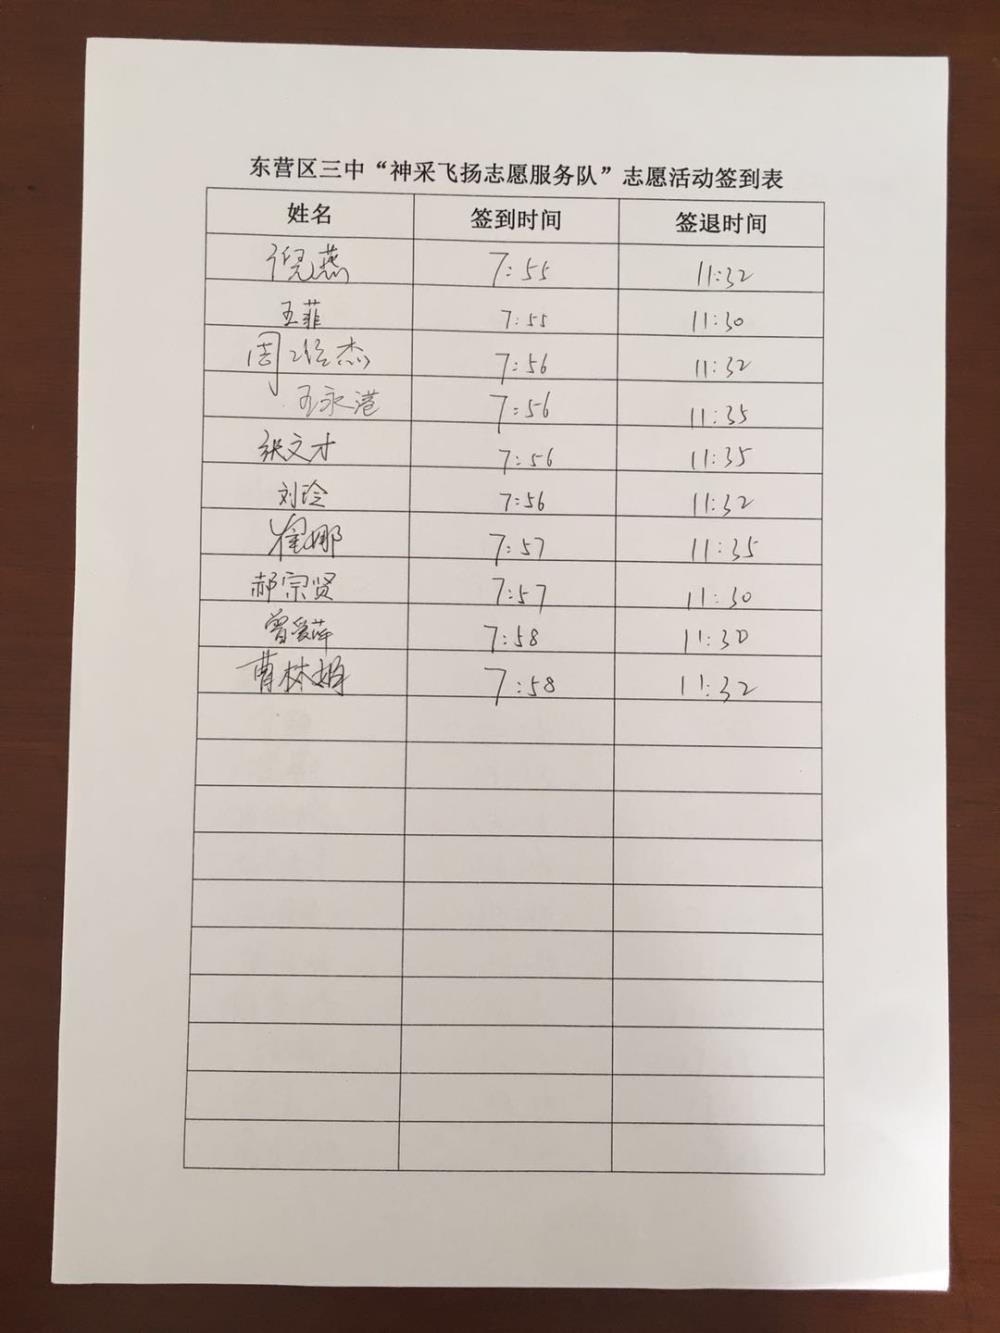 东营区三中“神采飞扬志愿服务队”志愿活动签到表
姓名 签到时间 签退时间
倪燕 7:55 11:32
王菲 7:55 11:30
周 杰 7:56 11:32
王永港 7:56 11:35
张文才 7:56 11:35
刘玲 7:56 11:32
崔娜 7:57 11:35
郝宗贤 7:57 11:30
曾爱萍 7:58 11:30
曹林娟 7:58 11:32